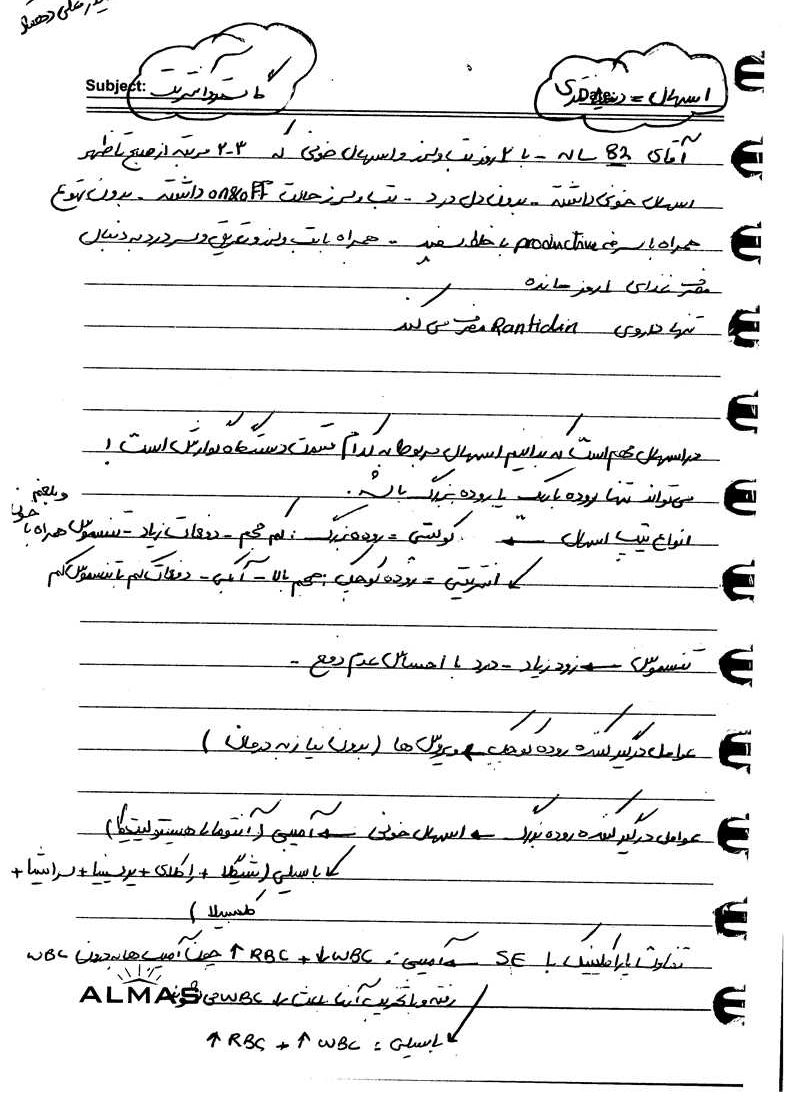 Subject: گاستروانتریت
Date: اسهال = دیسانتری
آقای 82 ساله - با ۲ روز تب و لرز و اسهال خونی که ۳-۲ مرتبه از صبح تا ظهر
اسهال خونی داشته - بدون دل درد - تب و لرز حالت on&off داشته - بدون تهوع
همراه با سرفه productive با خلط سفید - همراه با تب و لرز و تعریق و سردرد به دنبال
مصرف غذای امروز مانده
تنها داروی Rantidin مصرف می کند
در اسهال مهم است که بدانیم اسهال مربوط به کدام قسمت دستگاه گوارش است !
می تواند تنها روده باریک یا روده بزرگ باشد .
انواع تیپ اسهال ← کولیتی = روده بزرگ : کم حجم - دفعات زیاد - تنسموس همراه با خونی و بلغم
انتریتی = روده کوچک : حجم بالا - آبکی - دفعات کم تا تنسموس کم
تنسموس ← زور زیاد - درد با احساس عدم دفع -
عوامل درگیر کننده روده کوچک ← ویروس ها ( بدون نیاز به درمان )
عوامل درگیر کننده روده بزرگ ← اسهال خونی ← آمیبی ( آنتوموبا هیستولیتیکا )
باسیلی ( شیگلا + ایکلای + یرسینیا + سراشیا +
کلبسیلا )
تفاوت پاراکلینیک با SE ← آمیبی : ↓ WBC + ↑ RBC چون آمیب ها به درون WBC
رفته و با تخریب آن باعث ↓ WBC می شوند
باسیلی : ↑ WBC + ↑ RBC
ALMAS